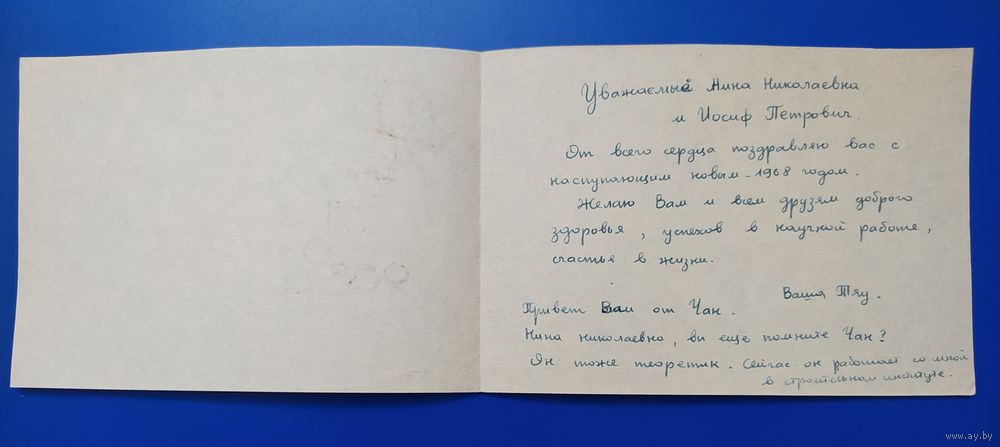 Уважаемые Нина Николаевна
и Иосиф Петрович.
От всего сердца поздравляю вас с
наступающим новым - 1968 годом.
Желаю Вам и всем друзьям доброго
здоровья, успехов в научной работе,
счастья в жизни.
Ваша Тяу.
Привет Вам от Чан.
Нина николаевна, вы ещё помните Чан?
Он тоже теоретик. Сейчас он работает со мной
в строительном институте.
www.ay.by